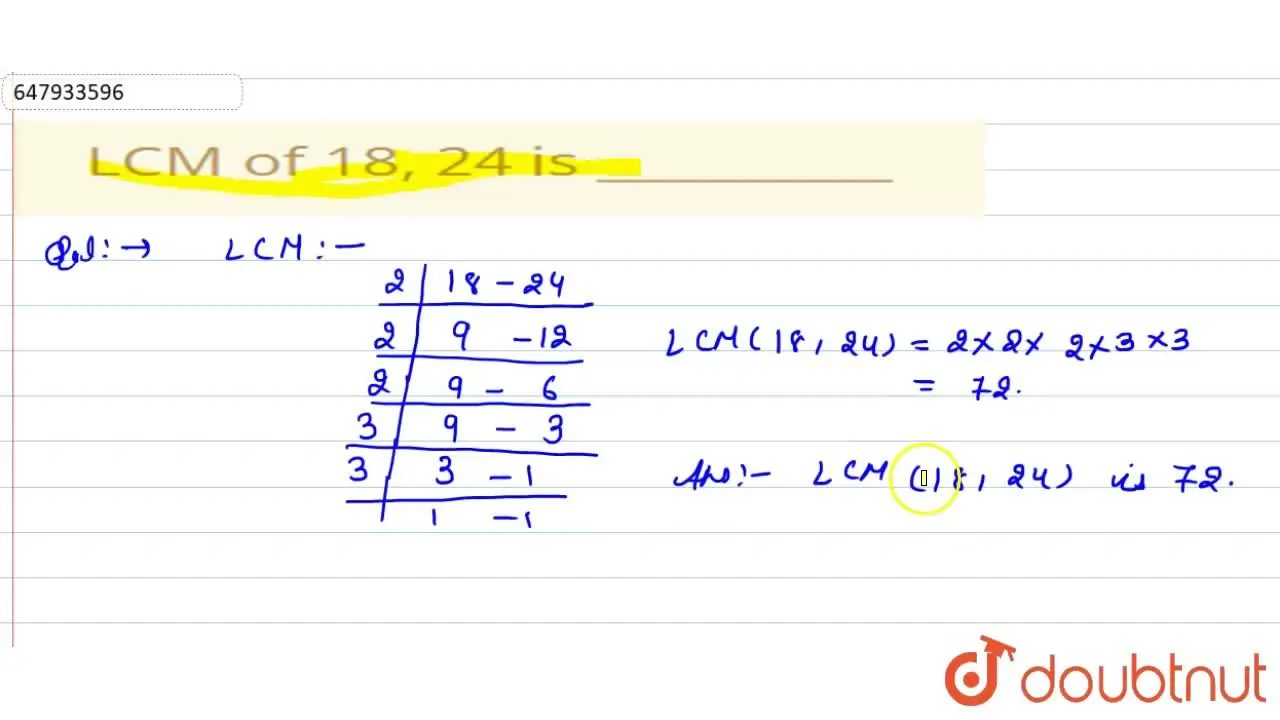 647933596
LCM of 18, 24 is ____________
Sol:→ LCM:-
2 | 18 - 24
2 | 9 - 12
2 | 9 - 6
3 | 9 - 3
3 | 3 - 1
1 - 1
LCM(18, 24) = 2×2×2×3×3
= 72.
Ans:- LCM (18, 24) is 72.
doubtnut